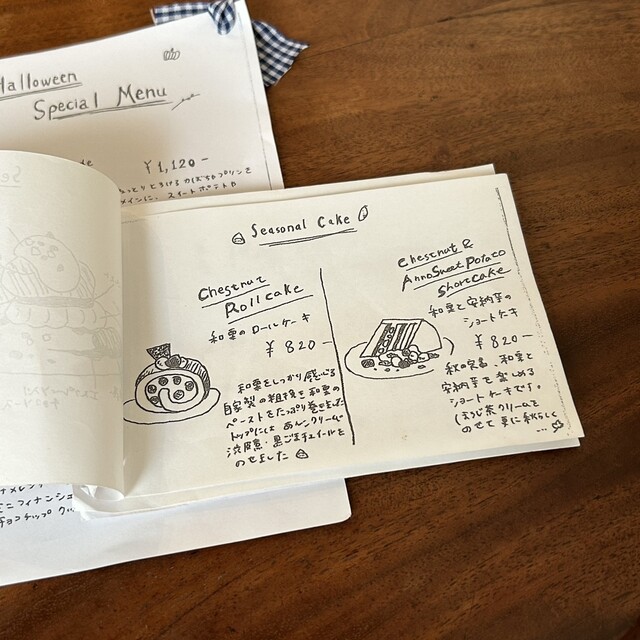 Halloween
Special Menu
¥1,120-
Seasonal Cake
Chestnut
Roll cake
和栗の ロールケーキ
¥ 820-
和栗をしっかり感じる
自家製の 和栗の
ペーストをたっぷり巻きました
トップには あんクリーム
渋皮煮・黒ごまチュイールを
のせました
Chestnut &
AnnoSweet Potato
Shortcake
和栗と安納芋の
ショートケーキ
¥ 820-
秋の 和栗と
安納芋を楽しめる
ショートケーキです。
ほうじ茶クリームを
のせて 更に秋らしく
...